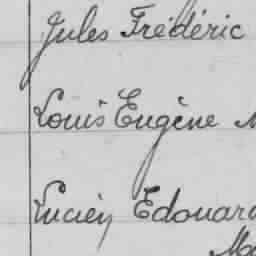 Jules Frédéric
Louis Eugène
Lucien Edouard